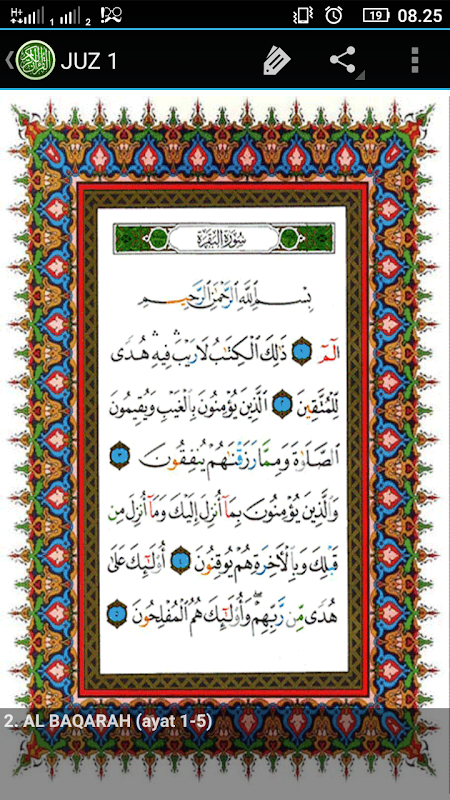 H+ 1 2 19 08.25
JUZ 1
سُورَةُ الْبَقَرَةِ
بِسْمِ ٱللَّهِ ٱلرَّحْمَٰنِ ٱلرَّحِيمِ
الٓمٓ ١ ذَٰلِكَ ٱلْكِتَٰبُ لَا رَيْبَ ۛ فِيهِ ۛ هُدًى
لِّلْمُتَّقِينَ ٢ ٱلَّذِينَ يُؤْمِنُونَ بِٱلْغَيْبِ وَيُقِيمُونَ
ٱلصَّلَوٰةَ وَمِمَّا رَزَقْنَٰهُمْ يُنفِقُونَ ٣
وَٱلَّذِينَ يُؤْمِنُونَ بِمَآ أُنزِلَ إِلَيْكَ وَمَآ أُنزِلَ مِن
قَبْلِكَ وَبِٱلْءَاخِرَةِ هُمْ يُوقِنُونَ ٤ أُو۟لَٰٓئِكَ عَلَىٰ
هُدًى مِّن رَّبِّهِمْ ۖ وَأُو۟لَٰٓئِكَ هُمُ ٱلْمُفْلِحُونَ ٥
2. AL BAQARAH (ayat 1-5)